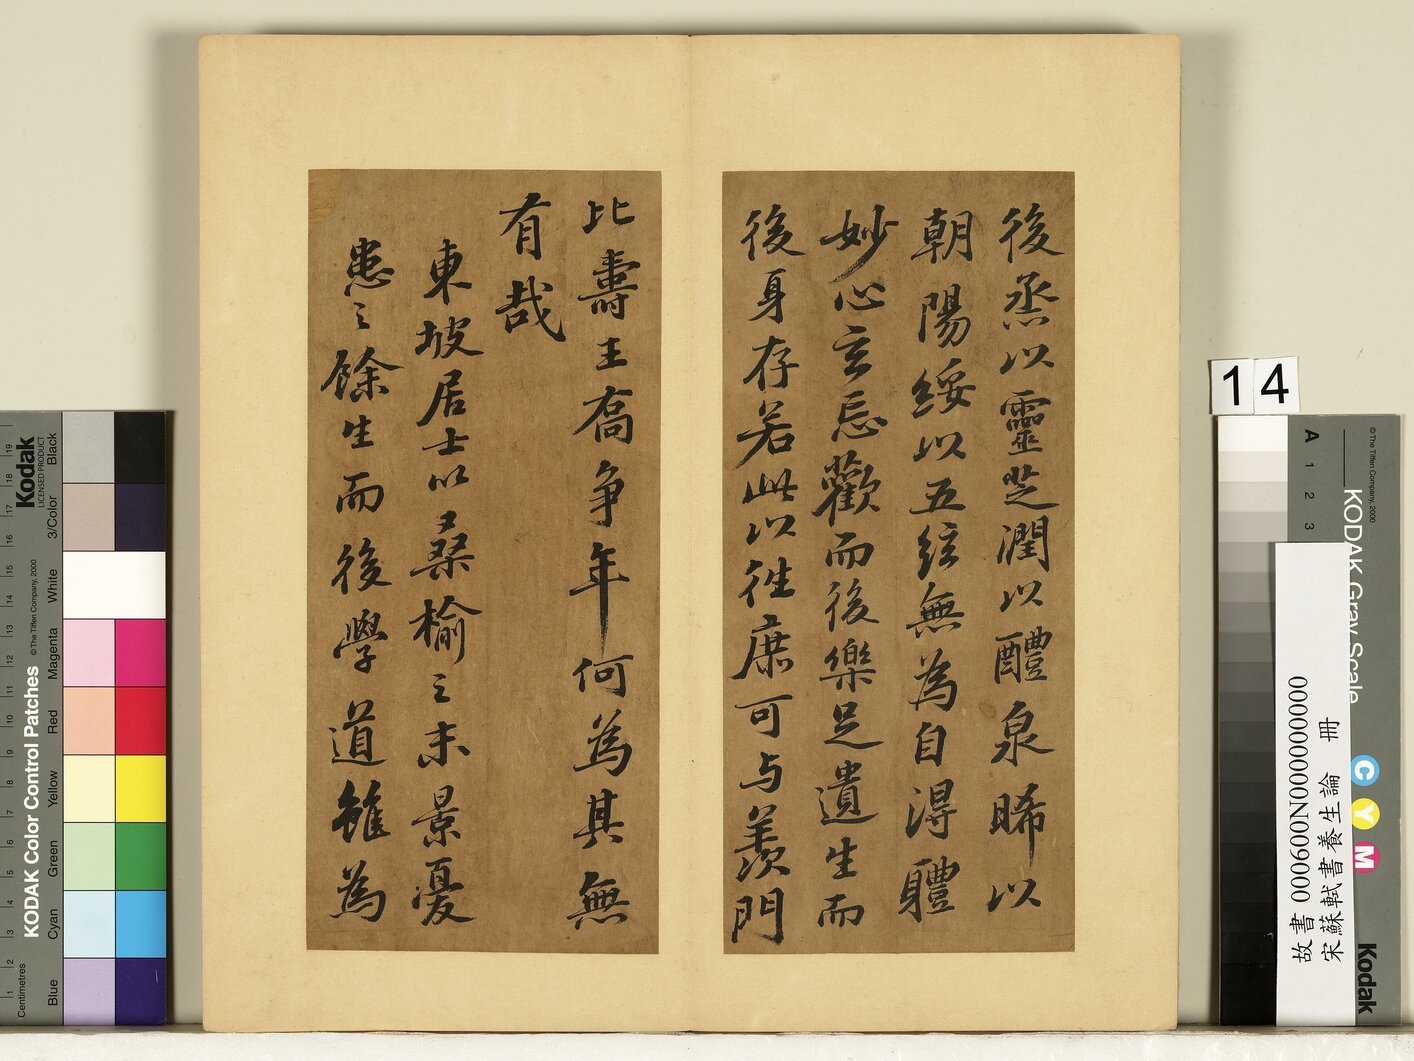 後烝以靈芝潤以醴泉晞以
朝陽綏以五絃無為自淂軆
妙心玄忘歡而後樂足遺生而
後身存若此以徃庶可与羨門
比壽王喬争年何為其無
有哉
東坡居士以桑榆之末景憂
患之餘生而後學道雖為
14
KODAK Color Control Patches
© The Tiffen Company, 2000
Kodak
LICENSED PRODUCT
Centimetres
Blue Cyan Green Yellow Red Magenta White 3/Color Black
1 2 3 4 5 6 7 8 9 10 11 12 13 14 15 16 17 18 19
KODAK Gray Scale
© The Tiffen Company, 2000
A 1 2 3
C Y M
Kodak
故書 000600N000000000
宋蘇軾書養生論 冊